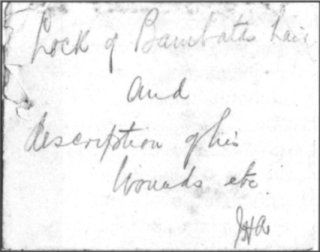 Lock of Bambata hair
and
description of his
Wounds etc.